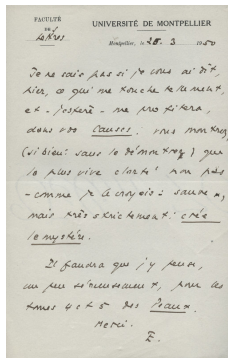 FACULTÉ
DE
Lettres
UNIVERSITÉ DE MONTPELLIER
Montpellier, le 28. 3 1950
Je ne sais pas si je vous ai dit,
hier, ce qui me touche tellement,
et - j'espère - me profitera,
dans vos Causes : vous montrez
(si bien ! sans le démontrer) que
la plus vive clarté non pas
- comme je le croyais : sauve,
mais très strictement : crée
le mystère.
Il faudra que j'y pense,
un peu sérieusement, pour les
tomes 4 et 5 des
Merci.